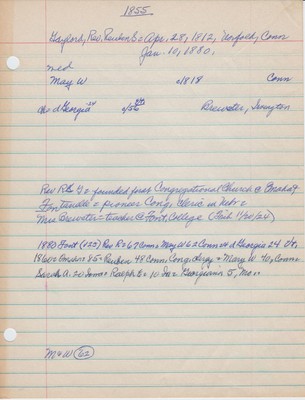 1855
Gaylord, Rev. Reuben b. Apr. 28, 1812, Norfolk, Conn
Jan. 10, 1880,
med
Mary W c1818 Conn
d Georgia 24 Brewster, Irvington
Rev R G founded first Congregational Church @ Omaha &
Fontanelle pioneer Cong. cleric in Nebr
Mrs Brewster teacher @ Font. College
1880 Font (125) Rev R 67 Conn Mary W 62 Conn d Georgia 24
1860 Omaha 85 Reuben 48 Conn Cong. clergy Mary W. 40, Conn
Sarah A. 20 Iowa Ralph E 10 Georgiann 5, Mo
M W 62